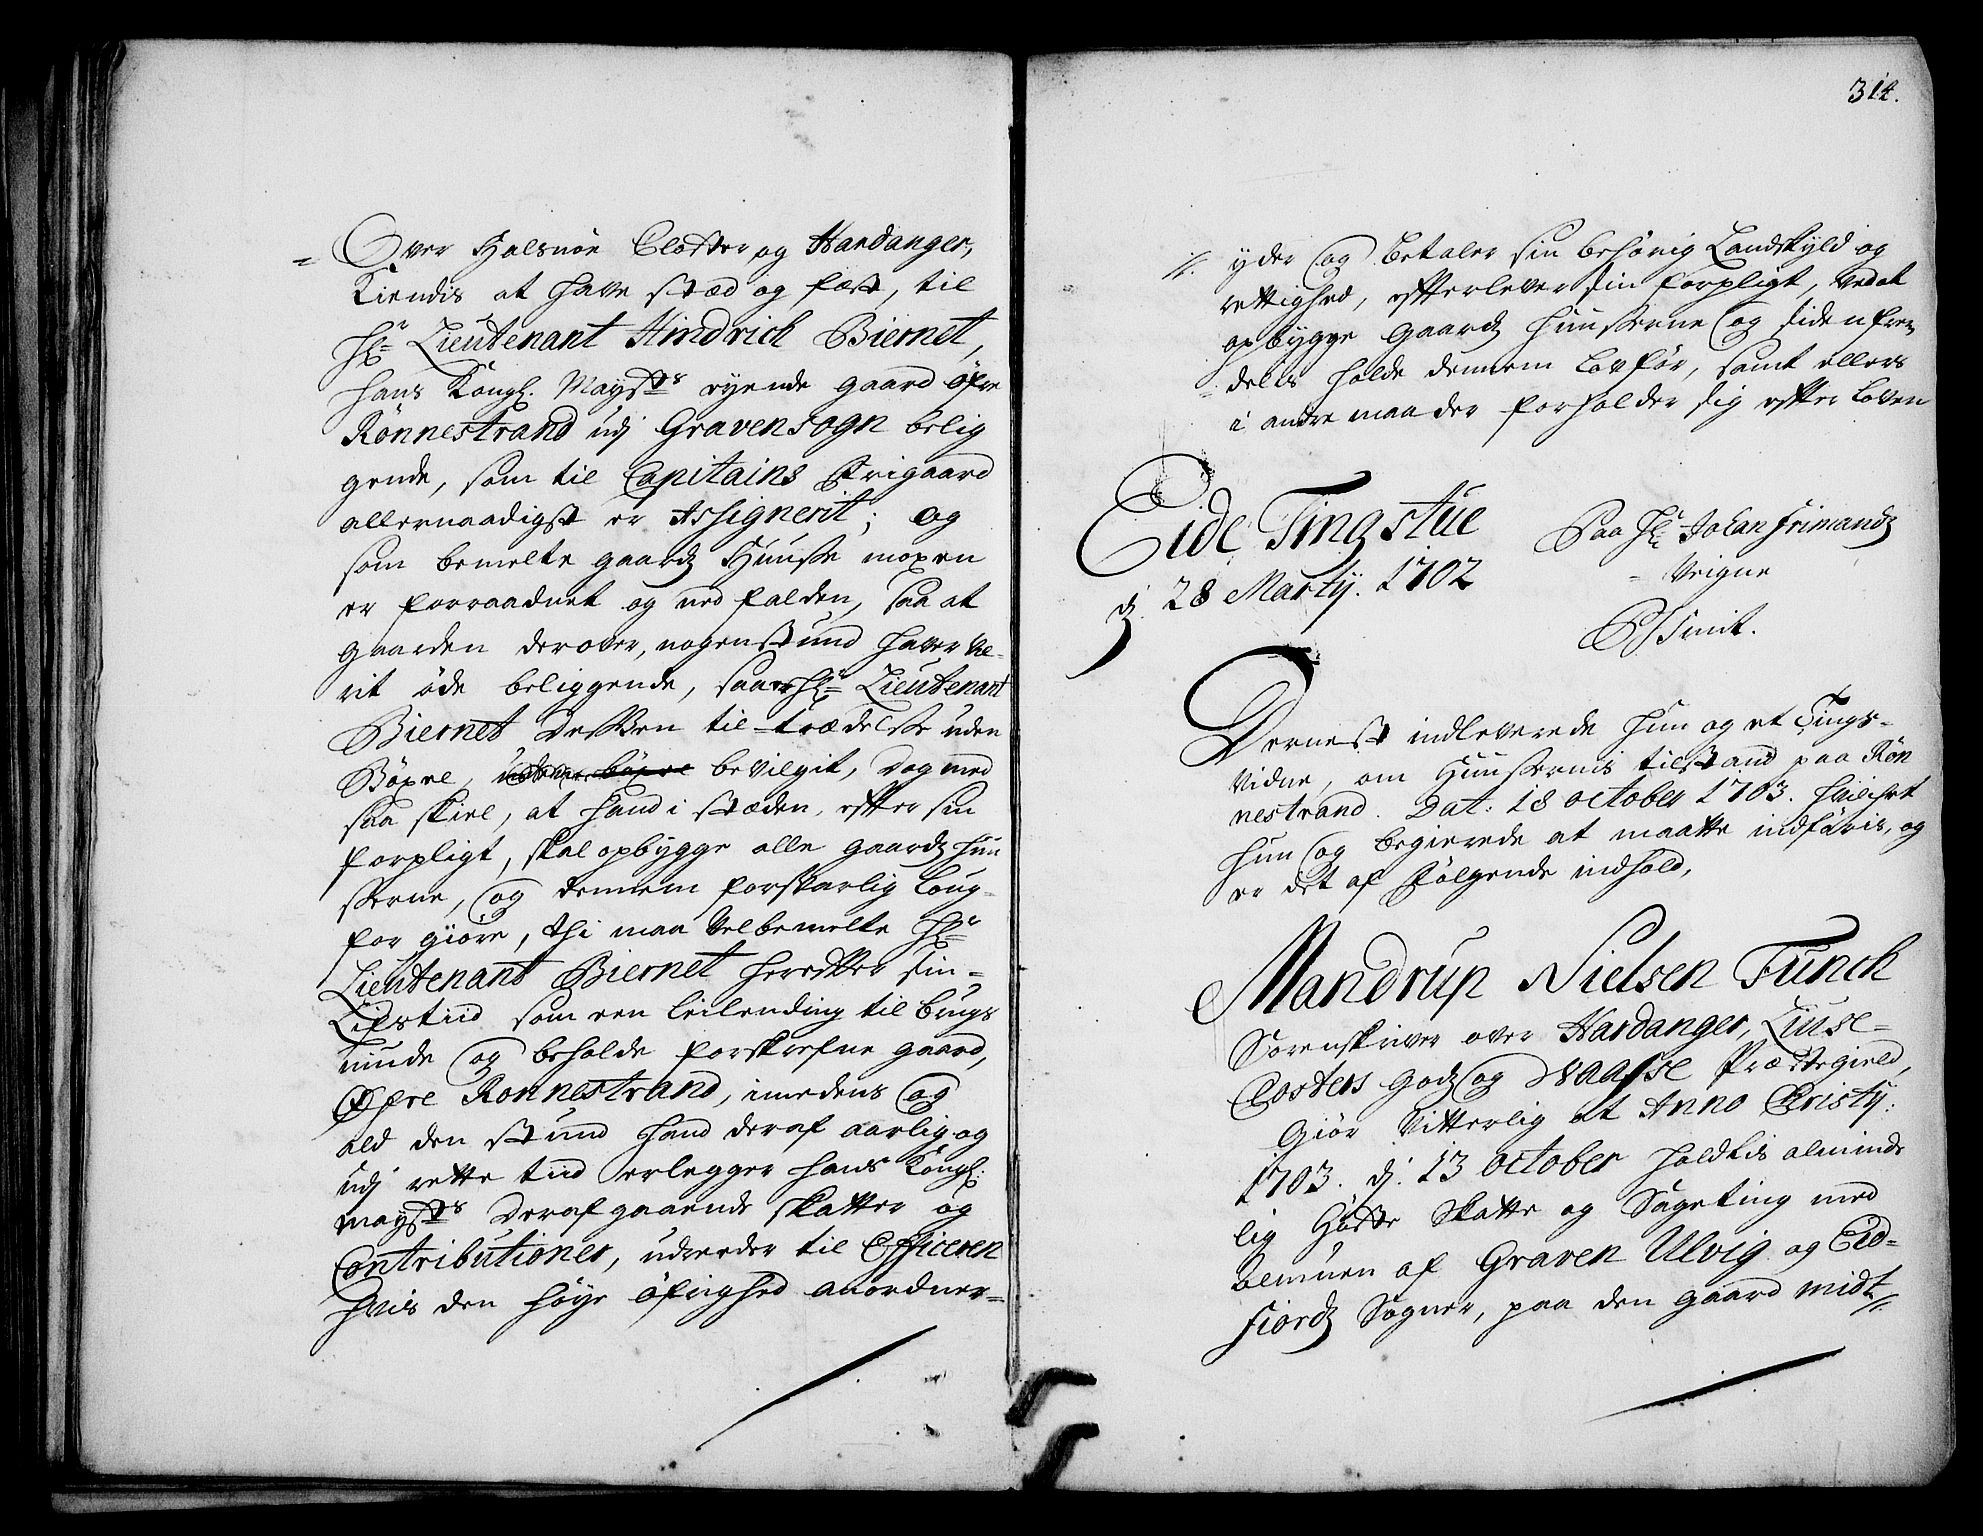 Over Halsnöe Closter og Hardanger,
Kiendis at have stæd og fæst, til
Hr. Lieutenant Hindrich Biernet,
hans Kongl. Mayts. eyende gaard öfre
Rönnestrand udj Gravensogn belig
gende, som til Capitains Frigaard
allernaadigst er Assignerit; og
som bemelte gaardz Huusse mexen
er forraadnet og ned falden, saa at
gaarden derover, nogen stund haver væ-
rit öde beliggende, saa er Hr. Lieutenant
Biernet dessen til trædelsse uden
Böxel, uden böxel bevilgit, dog med
saa skiel, at hand i stæden, efter sin
forpligt, skal opbygge alle gaardz huu
sserne, og dennem forsvarlig loug-
for giöre, thi maa Velbemelte Hr.
Lieutenant Biernet herefter sin
Lifstiid som een leilending til brugs
niude og beholde forskrefne gaard,
Öfre Ronnestrand, imedens og
ald den stund hand deraf aarlig og
udj rette tiid erlegger hans Kongl.
mayts. deraf gaaende skatter og
Contributioner, udreeder til Officeren
hvis den höye öfrighed anordner
314.
yder og betaler sin behörig Landskyld og
rettighed, efterlever sin forpligt, ved at
opbygge gaardz huusserne og siden frem
delis holde dennem lovför, samt ellers
i andre maader forholder sig efter loven
Eide Tingstue
d. 28 Martij. 1702
Paa Hr. Johan Frimandz
Veigne
P Smit.
Dernest indleverede hun og et Tings-
vidne, om Huusernis tilstand paa Rön
nestrand. Dat: 18 october 1703. hvilchet
hun og begierede at maatte indföris, og
er det af fölgende indhold,
Mandrup Nielsen Funch
Sorenskriver over Hardanger, Liuse-
Closters godz og Waasse Præstegield,
Giör Vitterlig at Anno Christy:
1703. d. 13 October holdtis alminde
lig Höste Skatte og Sageting med
almuen af Graven Ulvig og Eid-
fiordz Sogner, paa den gaard midt